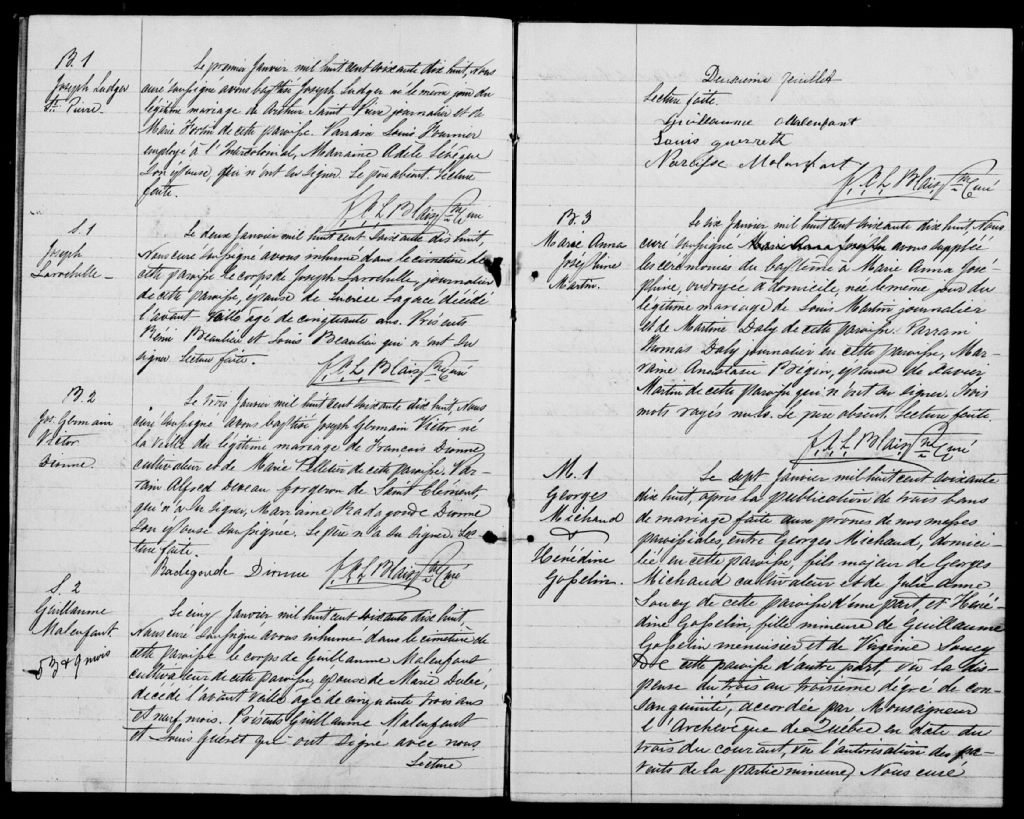 B. 1
Joseph Ludger
St. Pierre
Le premier Janvier mil huit cent soixante dix huit, Nous
curé soussigné avons baptisé Joseph Ludger né le même jour du
légitime mariage de Arthur Saint Pierre journalier et de
Marie Fortin de cette paroisse. Parrain Louis Fournier
employé à l'Intercolonial, Marraine Adèle Lévêque
son épouse, qui n'ont su signer. Le père absent. Lecture
faite.
J. C. L. Blais Ptre Curé
S. 1
Joseph
Larochelle
Le deux Janvier mil huit cent soixante dix huit,
Nous curé soussigné avons inhumé dans le cimetière de
cette paroisse le corps de Joseph Larochelle, journalier
de cette paroisse, époux de Lucrèce Lagacé décédé
l'avant veille âgé de cinquante ans. Présents
Rémi Beaulieu et Louis Beaulieu qui n'ont su
signer. Lecture faite.
Blais Ptre Curé
B. 2
Jos. Germain
Victor
Dionne
Le trois Janvier mil huit cent soixante dix huit, Nous
curé soussigné avons baptisé Joseph Germain Victor né
la veille du légitime mariage de François Dionne
cultivateur et de Marie Pelletier de cette paroisse. Par-
rain Alfred forgeron de Saint Clément,
qui n'a su signer, Marraine Radegonde Dionne
son épouse soussignée. Le père n'a su signer. Lec-
ture faite.
Radegonde Dionne Blais Ptre Curé
S. 2
Guillaume
Malenfant
53 & 9 mois
Le cinq Janvier mil huit cent soixante dix huit,
Nous curé soussigné avons inhumé dans le cimetière de
cette paroisse le corps de Guillaume Malenfant
cultivateur de cette paroisse, époux de Marie Dubé,
décédé l'avant veille âgé de cinquante trois ans
et neuf mois. Présents Guillaume Malenfant
et Louis Guéret qui ont signé avec nous
Lecture
Deuxième feuillet
Lecture faite.
Guillaume Malenfant
Louis guerrett
Narcisse Malenfant
Blais Ptre Curé
B. 3
Marie Anna
Joséphine
Martin.
Le six Janvier mil huit cent soixante dix huit, Nous
curé soussigné Marie Anna Joséphine avons suppléé
les cérémonies du baptême à Marie Anna José-
phine, ondoyée à domicile née le même jour du
légitime mariage de Louis Martin journalier
et de Martine Daly de cette paroisse. Parrain
Thomas Daly journalier en cette paroisse, Mar-
raine Anastasie Bégin, épouse de Xavier
Martin de cette paroisse qui n'ont su signer. Trois
mots rayés nuls. Le père absent. Lecture faite.
Blais Ptre Curé
M. 1
Georges
Michaud
&
Hénédine
Gosselin.
Le sept Janvier mil huit cent soixante
dix huit, après la publication de trois bans
de mariage faite aux prônes de nos messes
paroissiales, entre Georges Michaud, domici-
lié en cette paroisse, fils majeur de Georges
Michaud cultivateur et de Julie Anne
Soucy de cette paroisse d'une part, et Héné-
dine Gosselin, fille mineure de Guillaume
Gosselin menuisier et de Virginie Soucy
de cette paroisse d'autre part, vu la dis-
pense du trois au troisième dégré de con-
sanguinité, accordée par Monseigneur
l'Archevêque de Québec en date du
trois du courant, vu l'autorisation des pa-
rents de la partie mineure, Nous curé